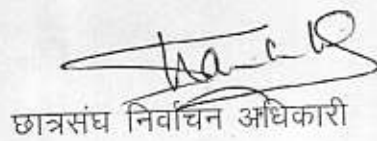 छात्रसंघ निर्वाचन अधिकारी